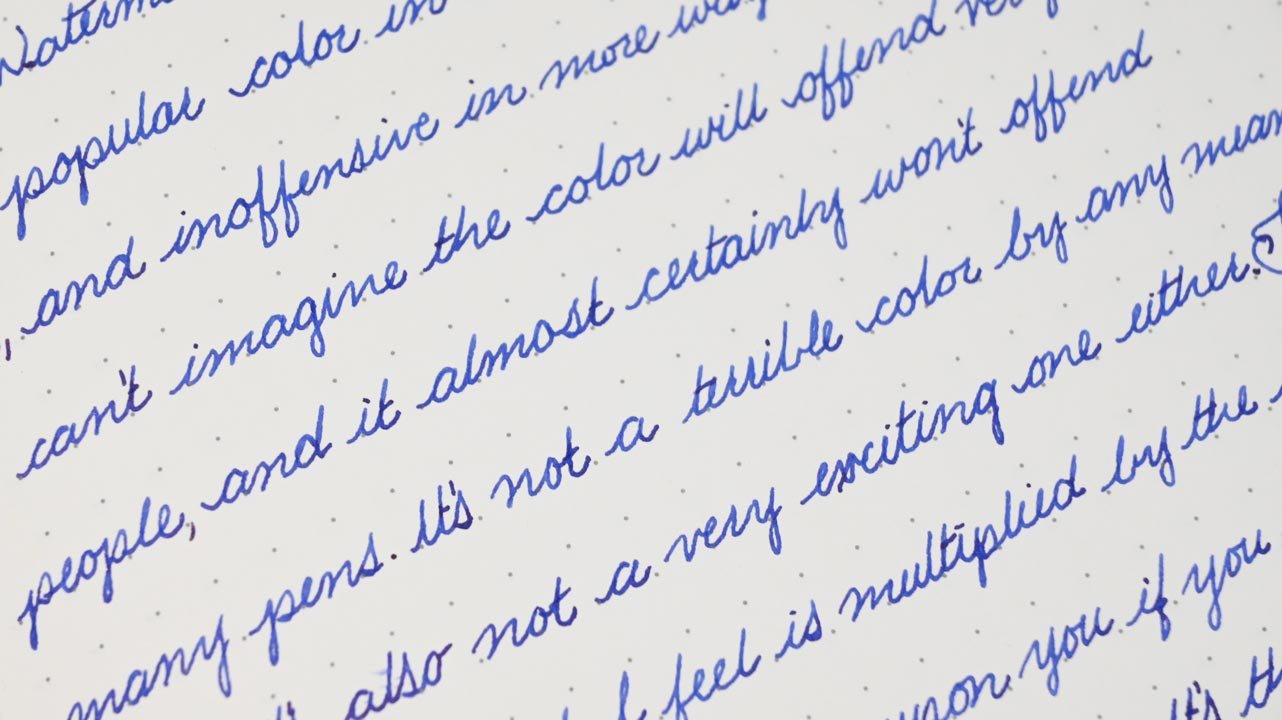 popular color in
, and inoffensive in more
can't imagine the color will offend
people, and it almost certainly won't offend
many pens. It's not a terrible color by any
also not a very exciting one either.
I feel is multiplied by the
upon you if you
It's